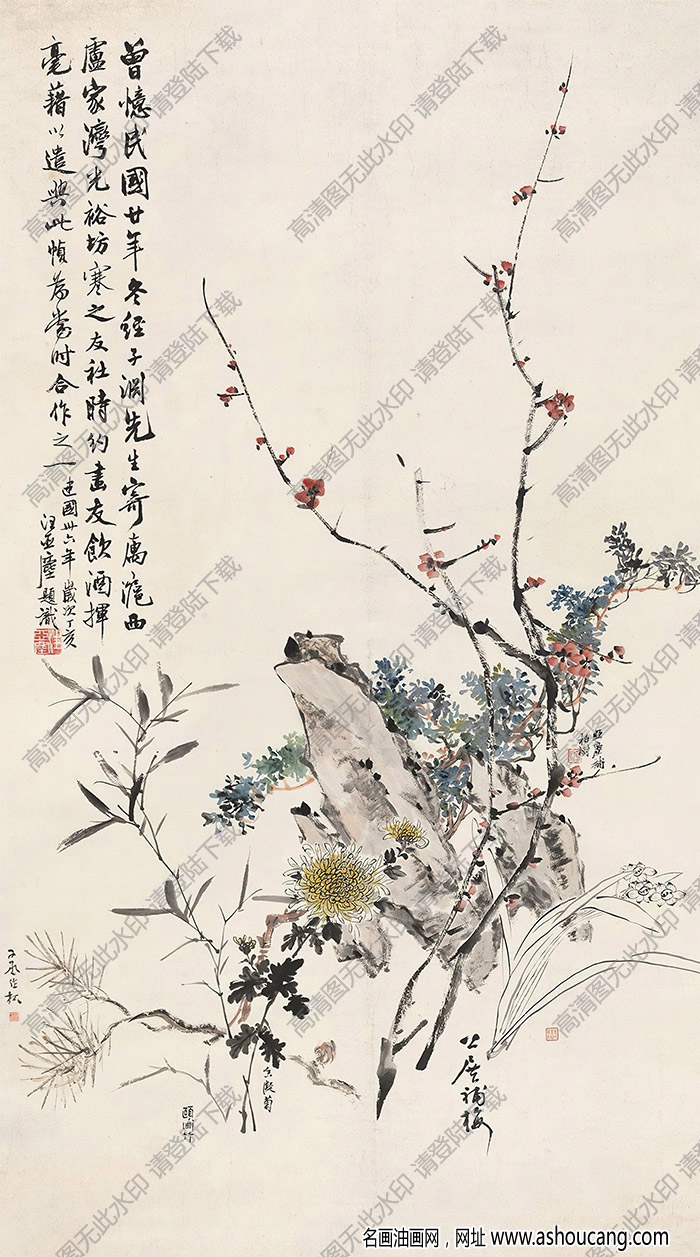 曾憶民國廿年冬經子淵先生寄寓滬西
盧家灣光裕坊寒之友社時約畫友飲酒揮
毫藉以遣興此幀為當时合作之一
建國卅六年歲次丁亥
汪亞塵題識
亞塵補
柏樹
公展補梅
香凝菊
頤淵竹
高清图无此水印 请登陆下载
名画油画网，网址 www.ashoucang.com